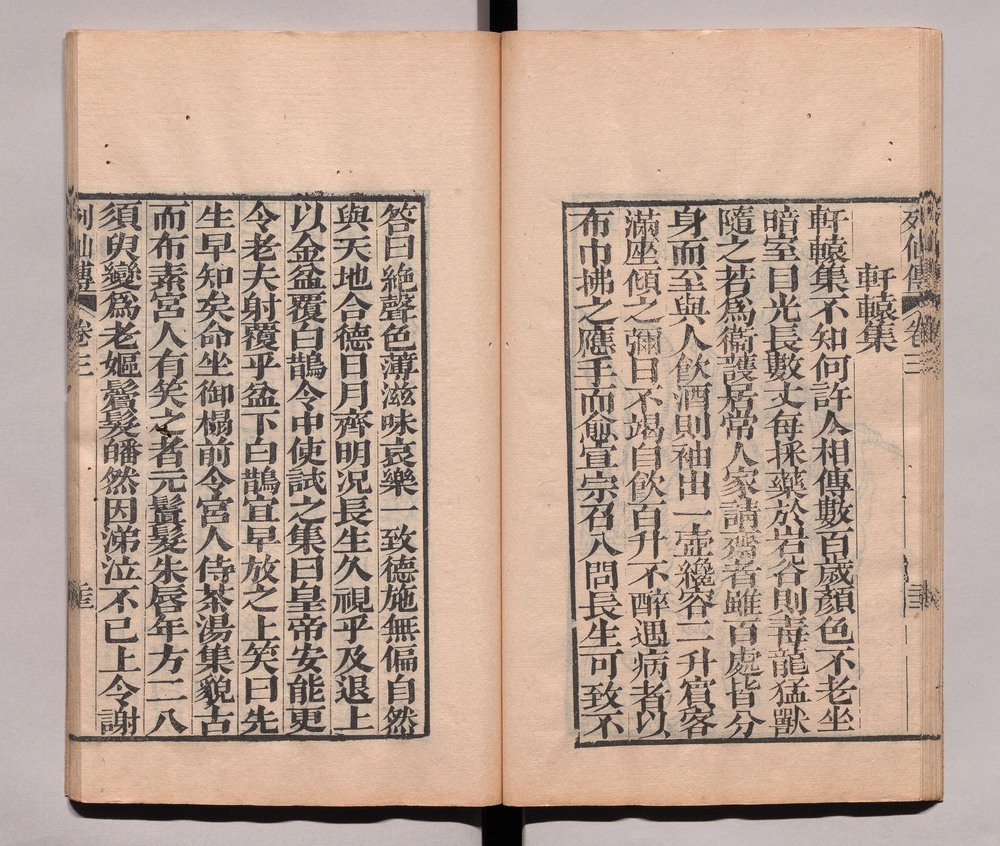 列仙傳 卷三
軒轅集
軒轅集不知何許人相傳數百歲顏色不老坐
暗室目光長數丈每採藥於岩谷則毒龍猛獸
隨之若爲衞護居常人家請齋者雖百處皆分
身而至與人飲酒則袖出一壺纔容二升賓客
滿座傾之彌日不竭自飲百升不醉遇病者以
布巾拂之應手而愈宣宗召入問長生可致不
答曰絶聲色薄滋味哀樂一致德施無偏自然
與天地合德日月齊明况長生久視乎及退上
以金盆覆白鵲令中使試之集曰皇帝安能更
令老夫射覆乎盆下白鵲宜早放之上笑曰先
生早知矣命坐御榻前令宮人侍茶湯集貌古
而布素宮人有笑之者元鬒髮朱唇年方二八
須臾變爲老嫗鬢髮皤然因涕泣不已上令謝
列仙傳 卷三